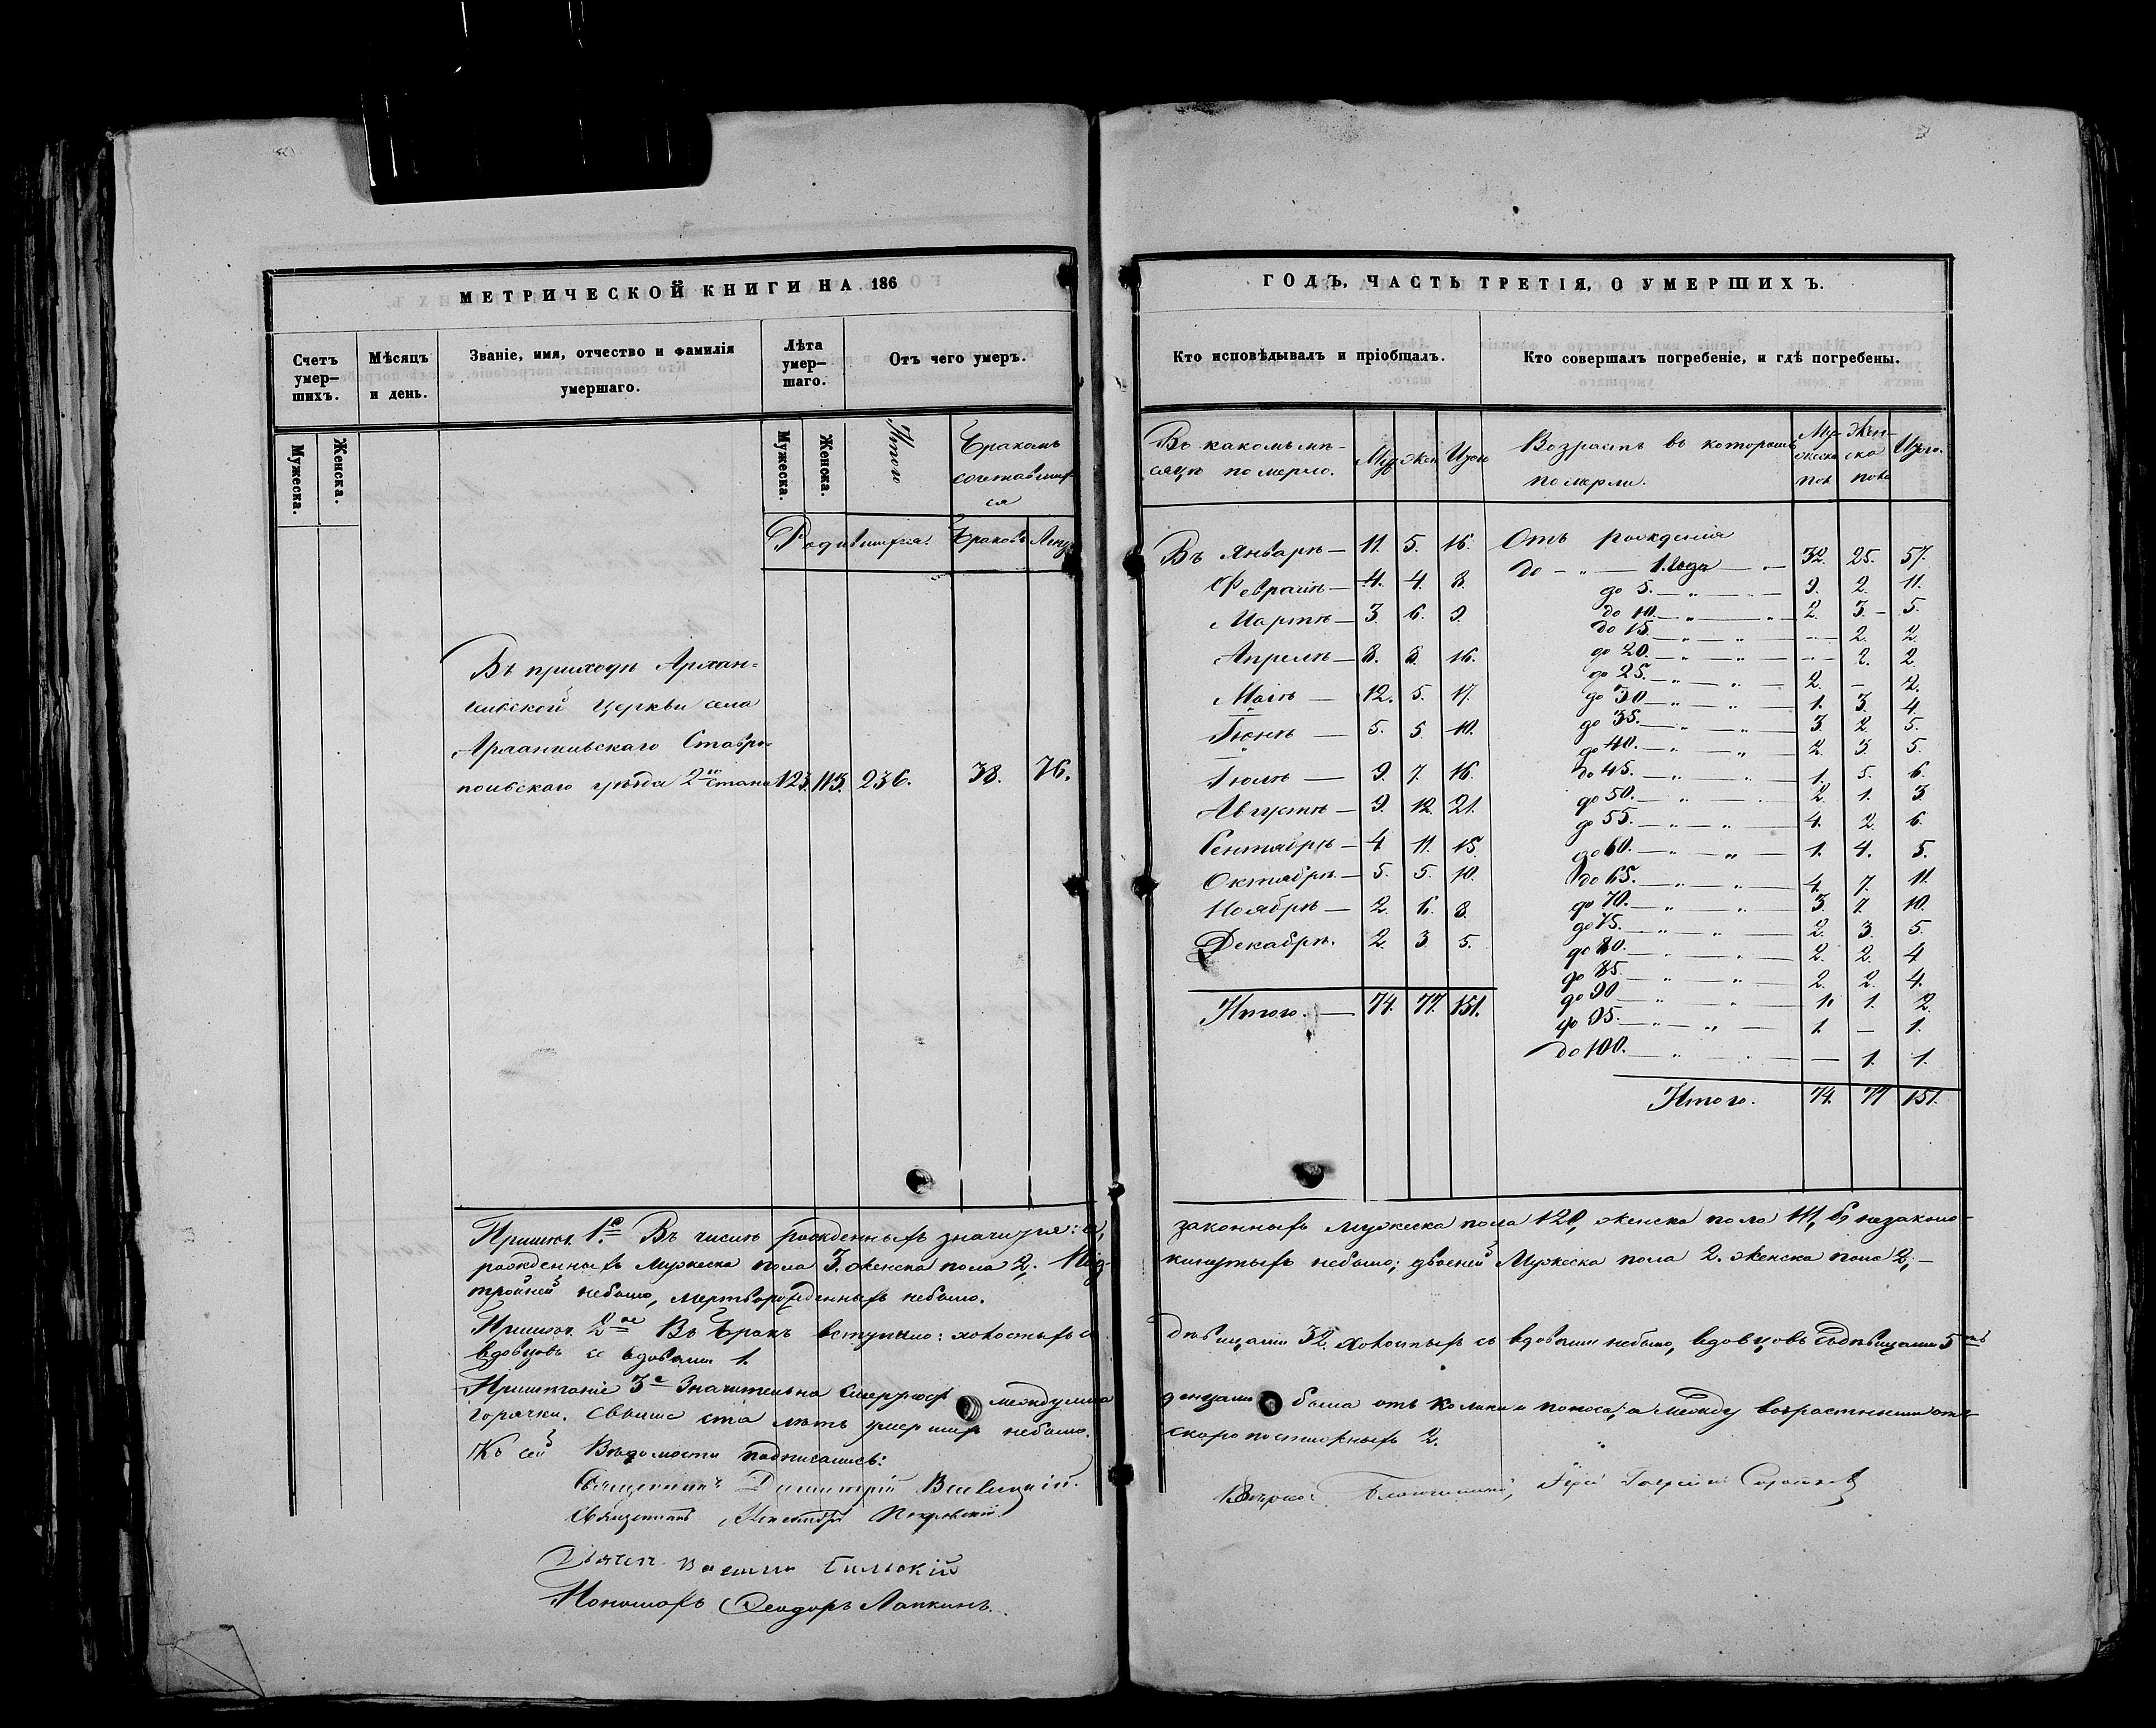 МЕТРИЧЕСКОЙ КНИГИ НА 186
Счетъ умер- шихъ.
Мѣсяцъ и день.
Званіе, имя, отчество и фамилія умершаго.
Лѣта умер- шаго.
Отъ чего умеръ.
Мужеска.
Женска.
Мужеска.
Женска.
Итого
Бракомъ
сочетавших
ся
Родившихся.
Браковъ
Въ приходѣАрхан-
гельской Церкви села
Архангельскаго Ставро-
польскаго уѣзда 2го стана 123. 113. 236. 38. 76.
Примѣч. 1е Въ числѣ рожденныхъ значится: а,
рожденныхъ Мужеска пола 3. женска пола 2. Под-
тройней небыло, мертворожденныхъ небыло.
Примѣч. 2ое Въ Бракъ вступило: холостыхъ съ
вдовцовъ съ вдовами 1.
Примѣчаніе 3е Значительна смертность между мла
горячки. Свыше ста лѣтъ умерших небыло.
Къ сей Вѣдомости подписались:
Священникъ Димитрій
Священникъ Александръ Покровскій.
Василій
Пономарь Ѳеодоръ Лапкинъ.
ГОДЪ, ЧАСТЬ ТРЕТІЯ, О УМЕРШИХЪ.
Кто исповѣдывалъ и пріобщалъ.
Кто совершалъ погребеніе, и гдѣ погребены.
Въ какомъ мѣ-
сяцѣ померло.
Муж Жен Итого
Возрастъ въ которомъ
померли.
Му- жеска пол
Жен- ска пола
Итого.
Въ Январѣ — 11. 5. 16.
Февралѣ — 4. 4. 8.
Мартѣ — 3. 6. 9.
Апрелѣ — 8. 8. 16.
Маіѣ — 12. 5. 17.
Іюнѣ — 5. 5. 10.
Іюлѣ — 9. 7. 16.
Августѣ — 9. 12. 21.
Сентябрѣ — 4. 11. 15.
Октябрѣ — 5. 5. 10.
Ноябрѣ — 2. 6. 8.
Декабрѣ. 2. 3. 5.
Итого. — 74. 77. 151.
Отъ рожденія
до — „ — 1. года — 32. 25. 57.
до 5. — „ — 9. 2. 11.
до 10. — „ — „ 2. 3 — 5.
до 15. — „ — „ — 2. 2.
до 20. — „ — „ — 2. 2.
до 25. — „ — „ — 2. — 2.
до 30 — „ — „ — 1. 3. 4.
до 35. — „ — „ — 3 2. 5.
до 40. — „ — „ — 2. 3. 5.
до 45. — „ — „ — 1. 5. 6.
до 50. — „ — „ — 2. 1. 3
до 55. — „ — „ — 4. 2. 6.
до 60. — „ — „ — 1. 4. 5.
до 65. — „ — „ — 4. 7. 11.
до 70. — „ — „ — 3 7. 10.
до 75. — „ — „ — 2. 3. 5.
до 80. — „ — „ — 2. 2. 4
до 85. — „ — „ — 2. 2. 4.
до 90 — „ — „ — 1. 1. 2
до 95. — „ — „ — 1. — 1.
до 100. — „ — „ — — 1. 1.
Итого. 74. 77 151.
законныхъ мужеска пола 120, женска пола 111, б, незаконно-
кинутыхъ небыло; двоеней Мужеска пола 2. женска пола 2; —
дѣвицами 32. холостыхъ съ вдовами небыло, вдовцовъ съ дѣвицами 5ть
денцами была отъ колики и поноса; а между возрастными отъ
скоропостижныхъ 2.